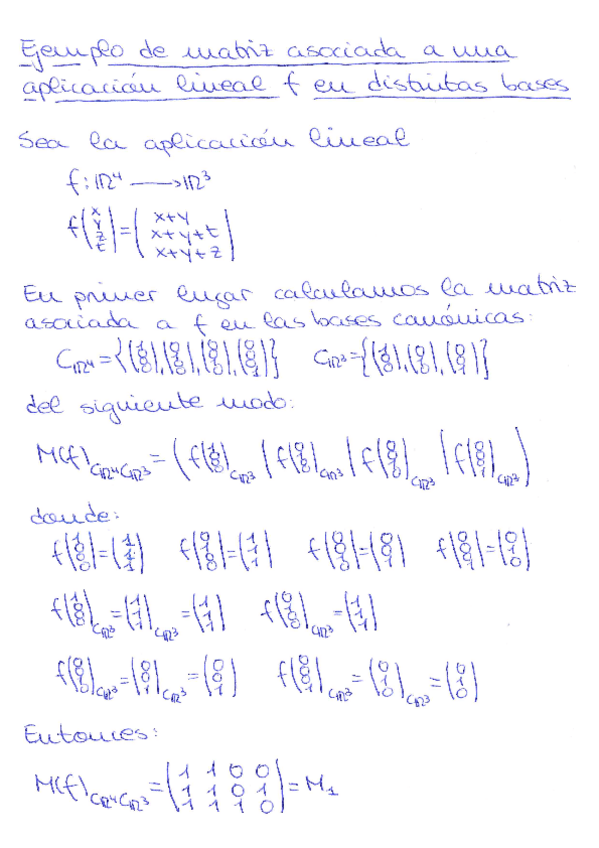 Ejemplo de matriz asociada a una
aplicación lineal f en distintas bases
Sea la aplicación lineal
f: ℝ⁴ ⟶ ℝ³
f(x y z t) = (x+y, x+y+t, x+y+z)
En primer lugar calculamos la matriz
asociada a f en las bases canónicas:
C_ℝ⁴ = {(1 0 0 0), (0 1 0 0), (0 0 1 0), (0 0 0 1)} C_ℝ³ = {(1 0 0), (0 1 0), (0 0 1)}
del siguiente modo:
M(f)_C_ℝ⁴C_ℝ³ = (f(1 0 0 0)_C_ℝ³ | f(0 1 0 0)_C_ℝ³ | f(0 0 1 0)_C_ℝ³ | f(0 0 0 1)_C_ℝ³)
donde:
f(1 0 0 0) = (1 1 1) f(0 1 0 0) = (1 1 1) f(0 0 1 0) = (0 0 1) f(0 0 0 1) = (0 1 0)
f(1 0 0 0)_C_ℝ³ = (1 1 1)_C_ℝ³ = (1 1 1) f(0 1 0 0)_C_ℝ³ = (1 1 1)
f(0 0 1 0)_C_ℝ³ = (0 0 1)_C_ℝ³ = (0 0 1) f(0 0 0 1)_C_ℝ³ = (0 1 0)_C_ℝ³ = (0 1 0)
Entonces:
M(f)_C_ℝ⁴C_ℝ³ = (1 1 0 0, 1 1 0 1, 1 1 1 0) = M₁